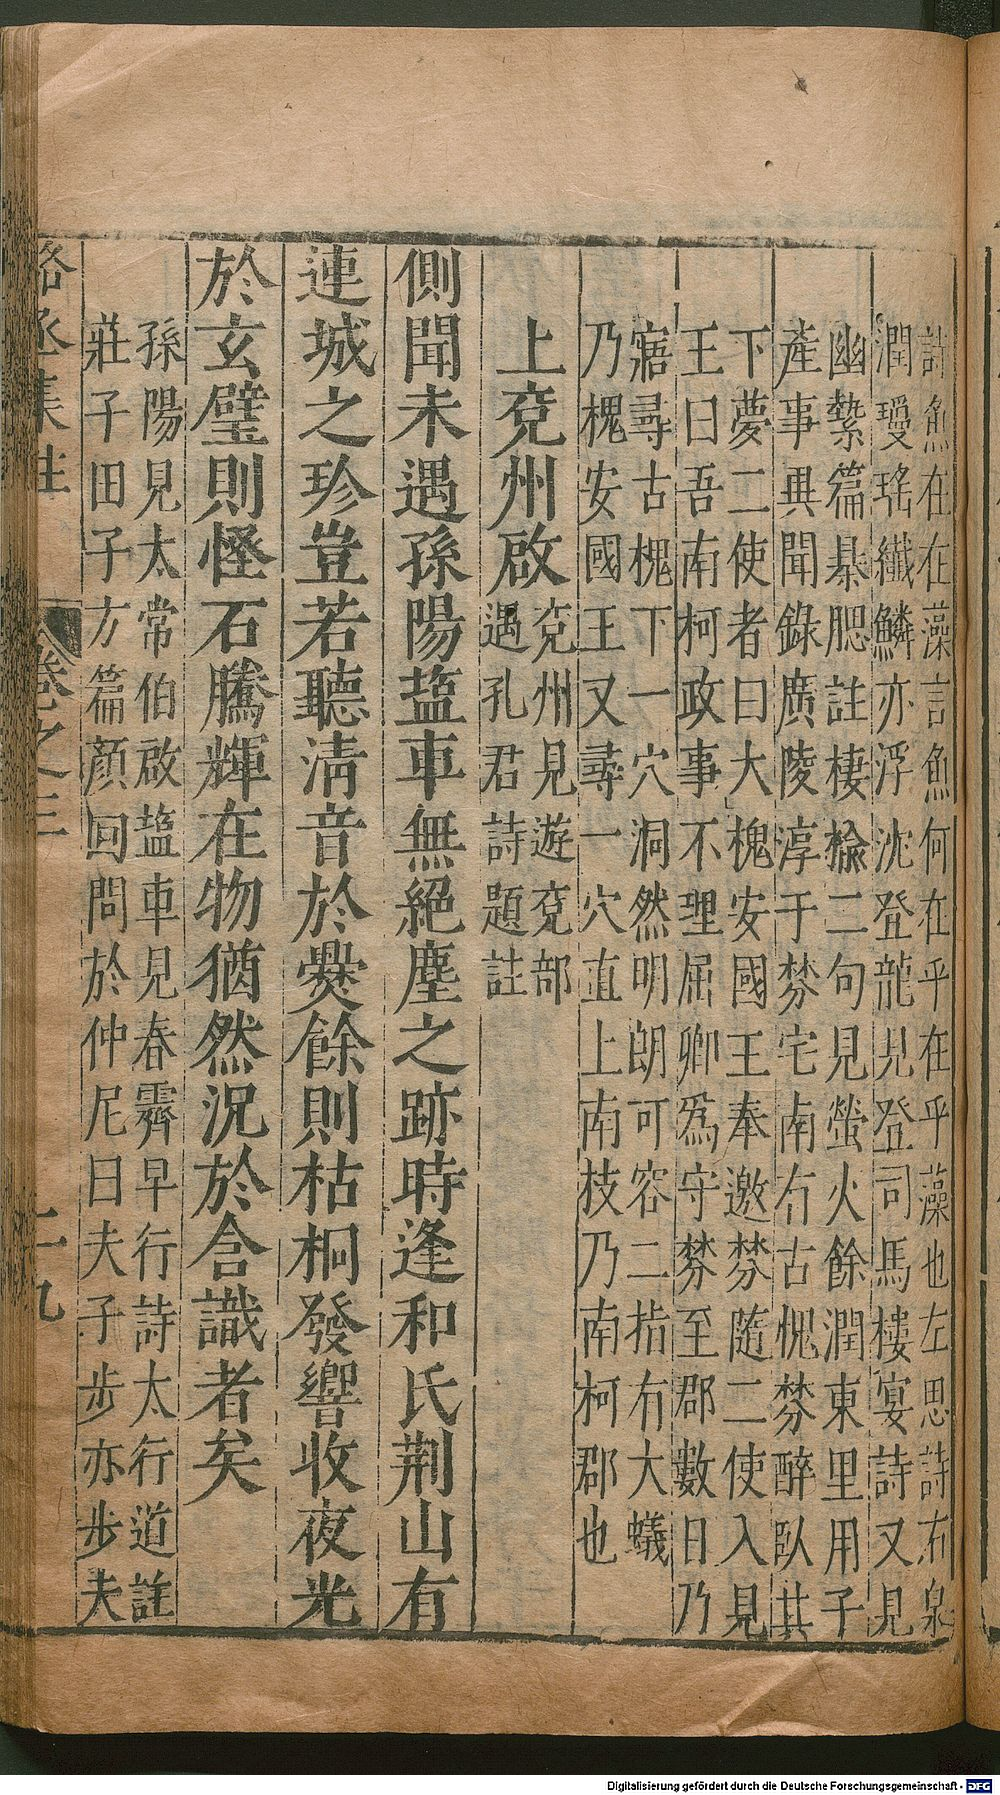 詩魚在在藻言魚何在乎在乎藻也左思詩石泉
潤璦瑤纖鱗亦浮沈登龍見登司馬樓宴詩又見
幽縶篇暴腮註棲楡二句見螢火餘潤東里用子
產事異聞錄廣陵淳于棼宅南有古槐棼醉臥其
下夢二使者曰大槐安國王奉邀棼隨二使入見
王曰吾南柯政事不理屈卿爲守棼至郡數日乃
寤尋古槐下一穴洞然明朗可容二指有大蟻
乃槐安國王又尋一穴直上南枝乃南柯郡也
上兗州啟
兗州見遊兗部
遇孔君詩題註
側聞未遇孫陽䀋車無絕塵之跡時逢和氏荆山有
連城之珍豈若聽淸音於㸑餘則枯桐發響收夜光
於玄璧則怪石騰輝在物猶然況於含識者矣
孫陽見太常伯啟䀋車見春霽早行詩太行道註
莊子田子方篇顏回問於仲尼曰夫子步亦步夫
駱丞集註
卷之三
二九
Digitalisierung gefördert durch die Deutsche Forschungsgemeinschaft - DFG